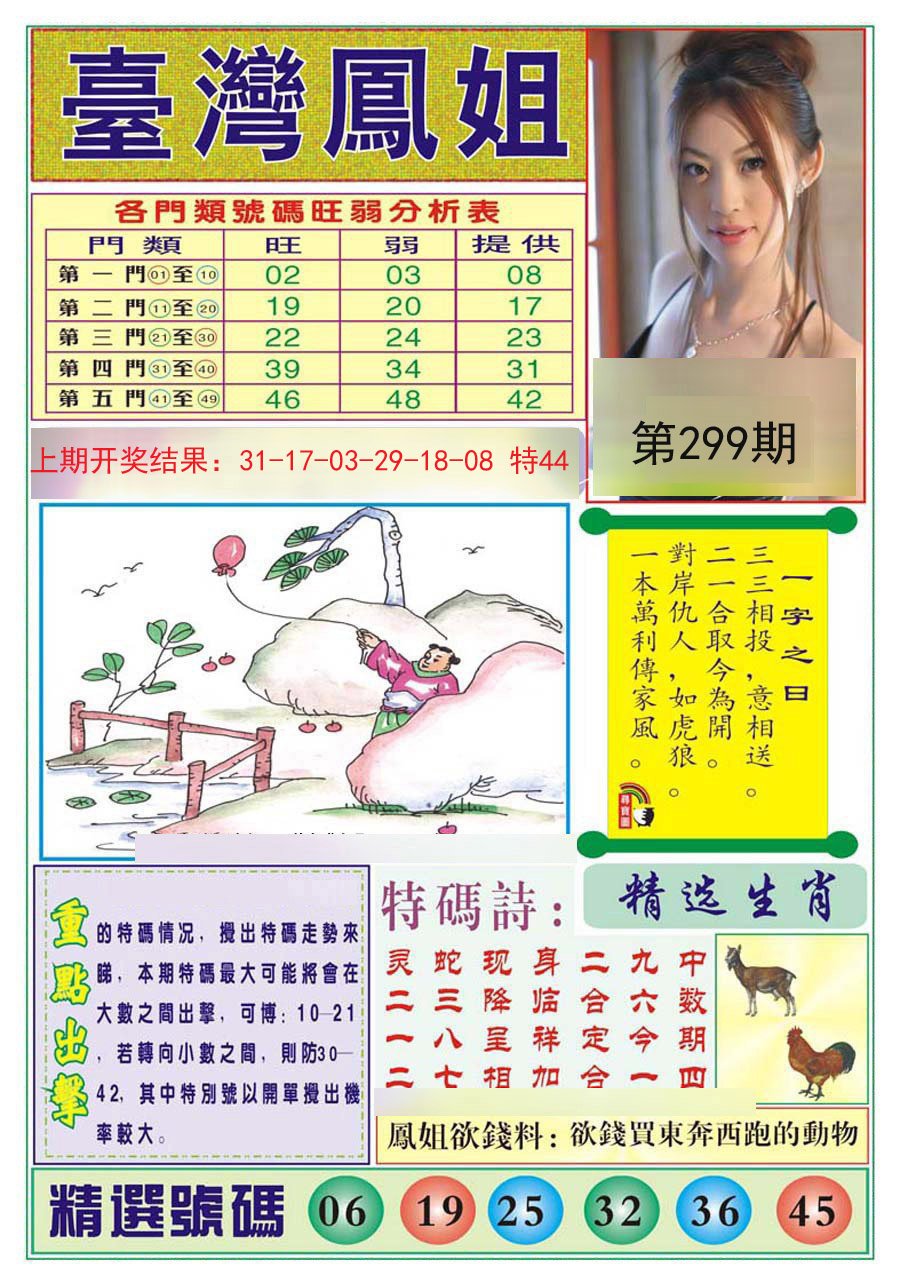 臺灣鳳姐
各門類號碼旺弱分析表
門類 旺 弱 提供
第一門01至10 02 03 08
第二門11至20 19 20 17
第三門21至30 22 24 23
第四門31至40 39 34 31
第五門41至49 46 48 42
上期开奖结果：31-17-03-29-18-08 特44
第299期
一字之曰
三三相投，意相送。
二一合取今為開。
對岸仇人，如虎狼。
一本萬利傳家風。
尋寶圖
重點出擊
的特碼情况，攪出特碼走勢來
睇，本期特碼最大可能將會在
大數之間出擊，可博：10—21
，若轉向小數之間，則防30—
42，其中特別號以開單攪出機
率較大。
特碼詩：
灵蛇现身二九中
二三降临合六数
一八呈祥定今期
二七相加合一四
精选生肖
鳳姐欲錢料：欲錢買東奔西跑的動物
精選號碼 06 19 25 32 36 45